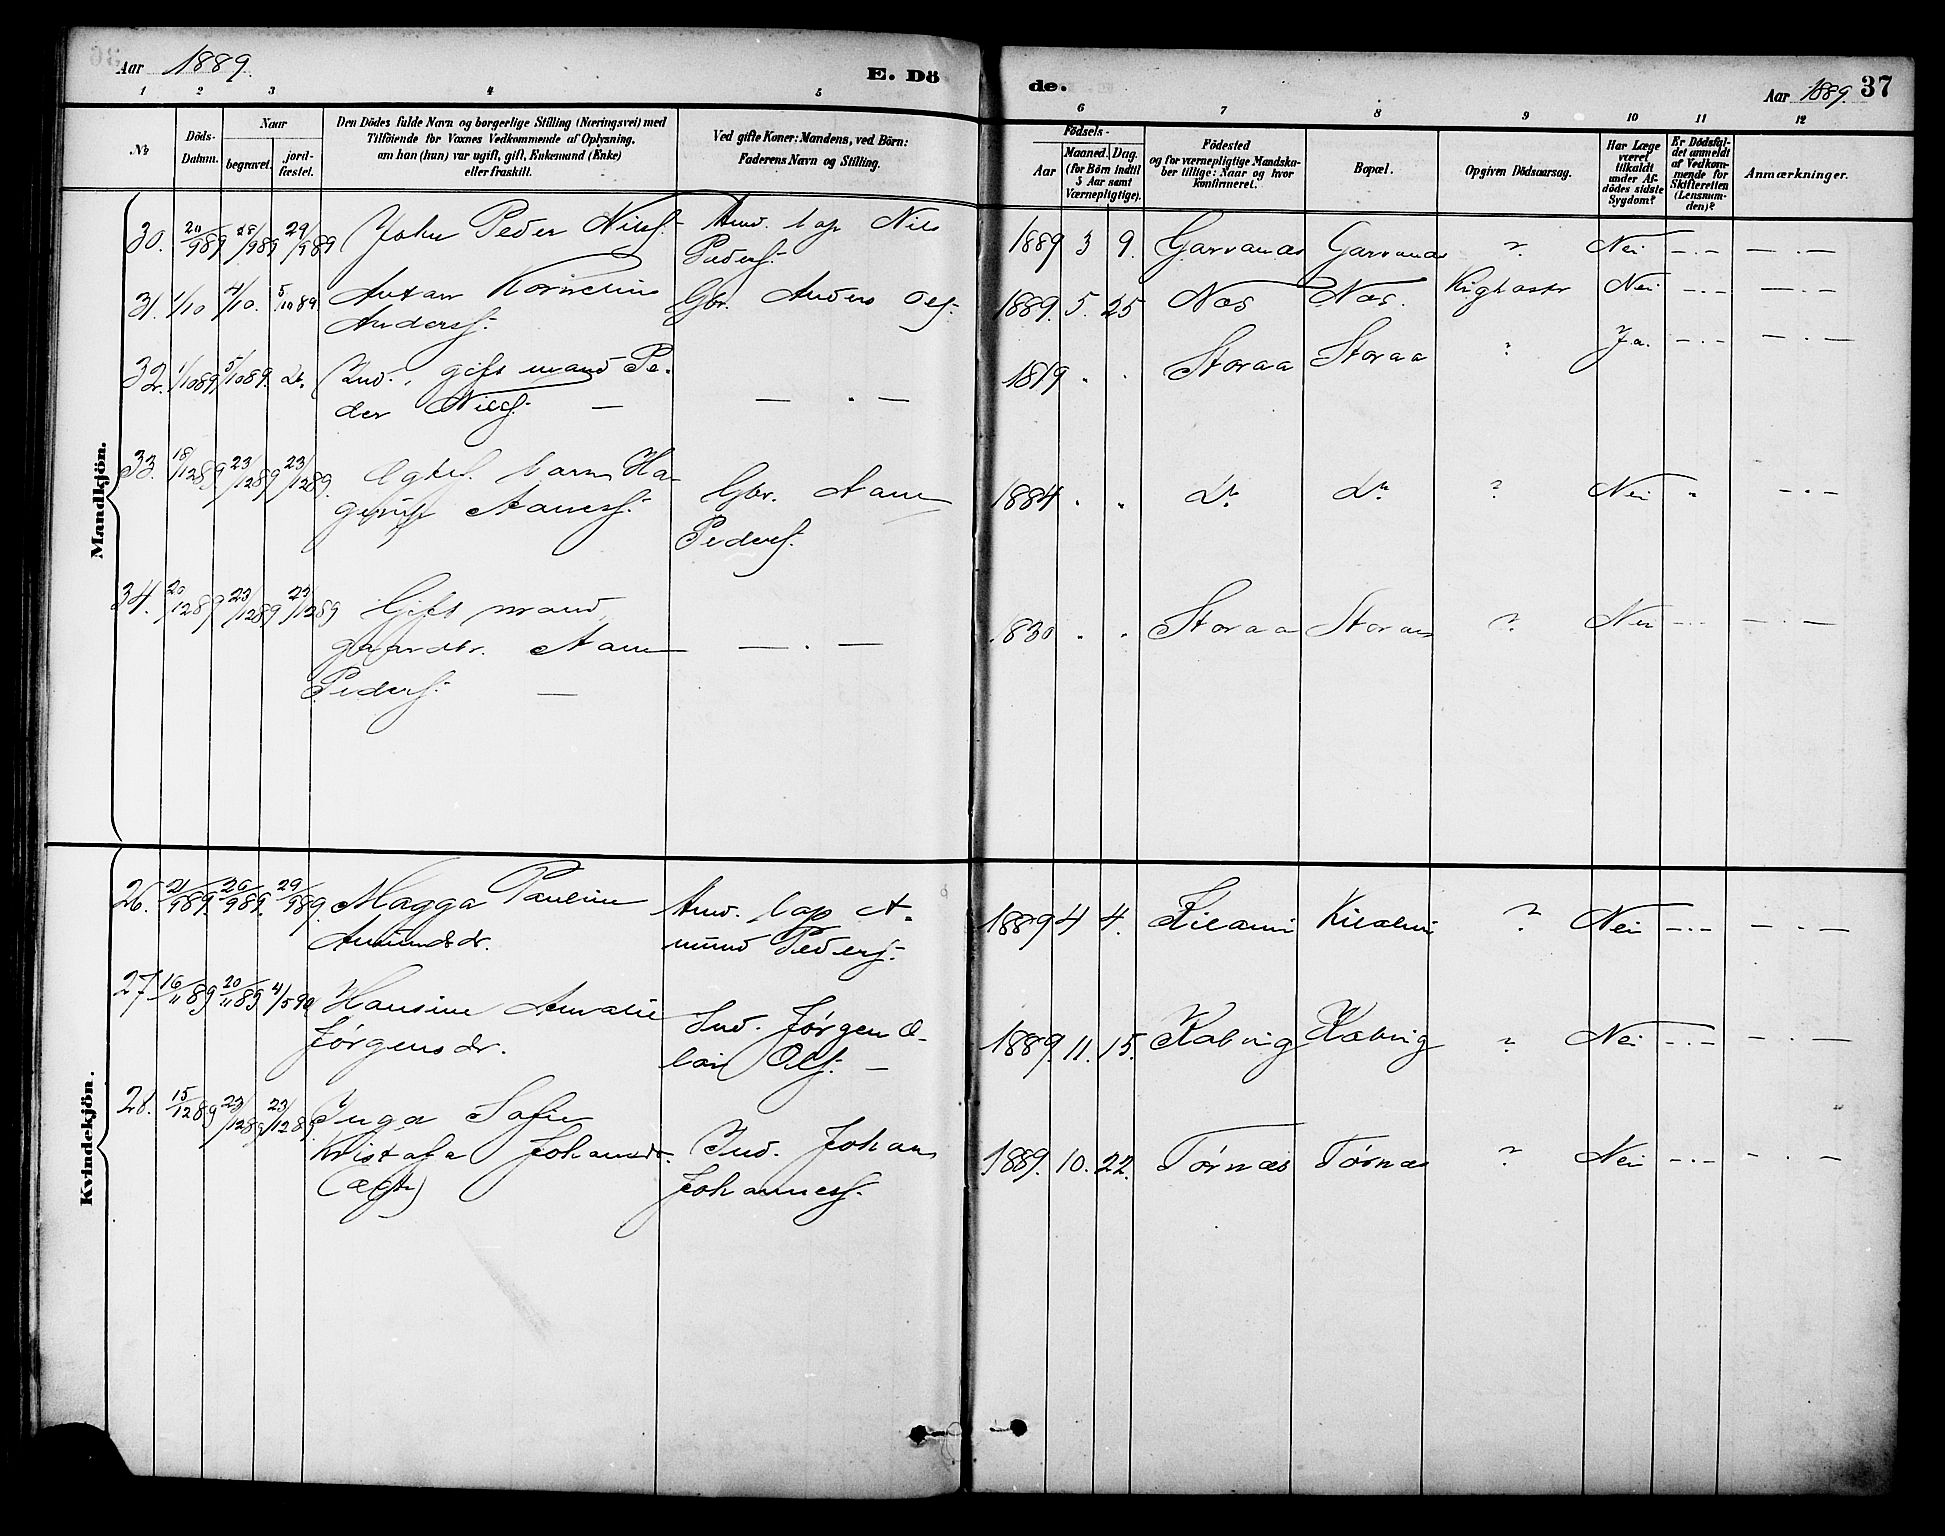 Aar 1889.
E. Dö
de.
Aar 1889.
37
1 2 3 4 5 6 7 8 9 10 11 12
No
Döds-
Datum.
Naar
begravet.
jord-
fæstet.
Den Dödes fulde Navn og borgerlige Stilling (Næringsvei) med
Tilföiende for Voxnes Vedkommende af Oplysning,
om han (hun) var ugift, gift, Enkemand (Enke)
eller fraskilt.
Ved gifte Koner: Mandens, ved Börn:
Faderens Navn og Stilling.
Födsels-
Aar
Maaned. Dag.
(for Börn indtil
5 Aar samt
Værnepligtige).
Födested
og for værnepligtige Mandska-
ber tillige: Naar og hvor
konfirmeret.
Bopæl.
Opgiven Dödsaarsag.
Har Læge
været
tilkaldt
under Af-
dödes sidste
Sygdom?
Er Dödsfal-
det anmeldt
af Vedkom-
mende for
Skifteretten
(Lensman-
den)?
Anmærkninger.
Mandkjön.
30. 20/989 28/989 29/989 John Peder Nilsf. lap Nils
Pedersf.
1889 3 9. Garranas Garranas ? Nei — . — — . —
31. 1/10 4/10. 5/1089. Kornelius
Andersf.
Gbr. Anders Olsf.
1889. 5. 25 Næs Næs. Kighoste Nei — . — — . —
32. 1/1089 5/1089. do. Ind., gift mand Pe-
der Nilsf. — — . —
1819 . . Storaa Storaa ? Ja. — . — — . —
33. 18/1289 23/1289 23/1289. barn Ha-
Gbr.
Pedersf.
1884 . . do do ? Nei " — . —
34. 20/1289 23/1289 23/1289 Gift mand,
gaardbr.
Pedersf. — — . —
1830 . . Storaa Storaa ? Nei — . — — . —
Kvindekjön.
26. 21/989. 26/989. 29/989. Magga Pauline
Amundsdr.
lap A-
mund Pedersf.
1889 4 4. ? Nei — . — — . —
27 16/1189 20/1189 4/590 Hansine Amalie
Jørgensdr.
Ind. Jørgen O-
lai Olsf. —
1889. 11. 15. Kobvig Kobvig ? Nei — . — — . —
28. 15/1289 23/1289 23/1289. Inga Sofie
Kristofa Johansdr.
(ægte)
Ind. Johan
Johannesf.
1889. 10. 22. Tørnæs Tørnæs ? Nei — . — — . —